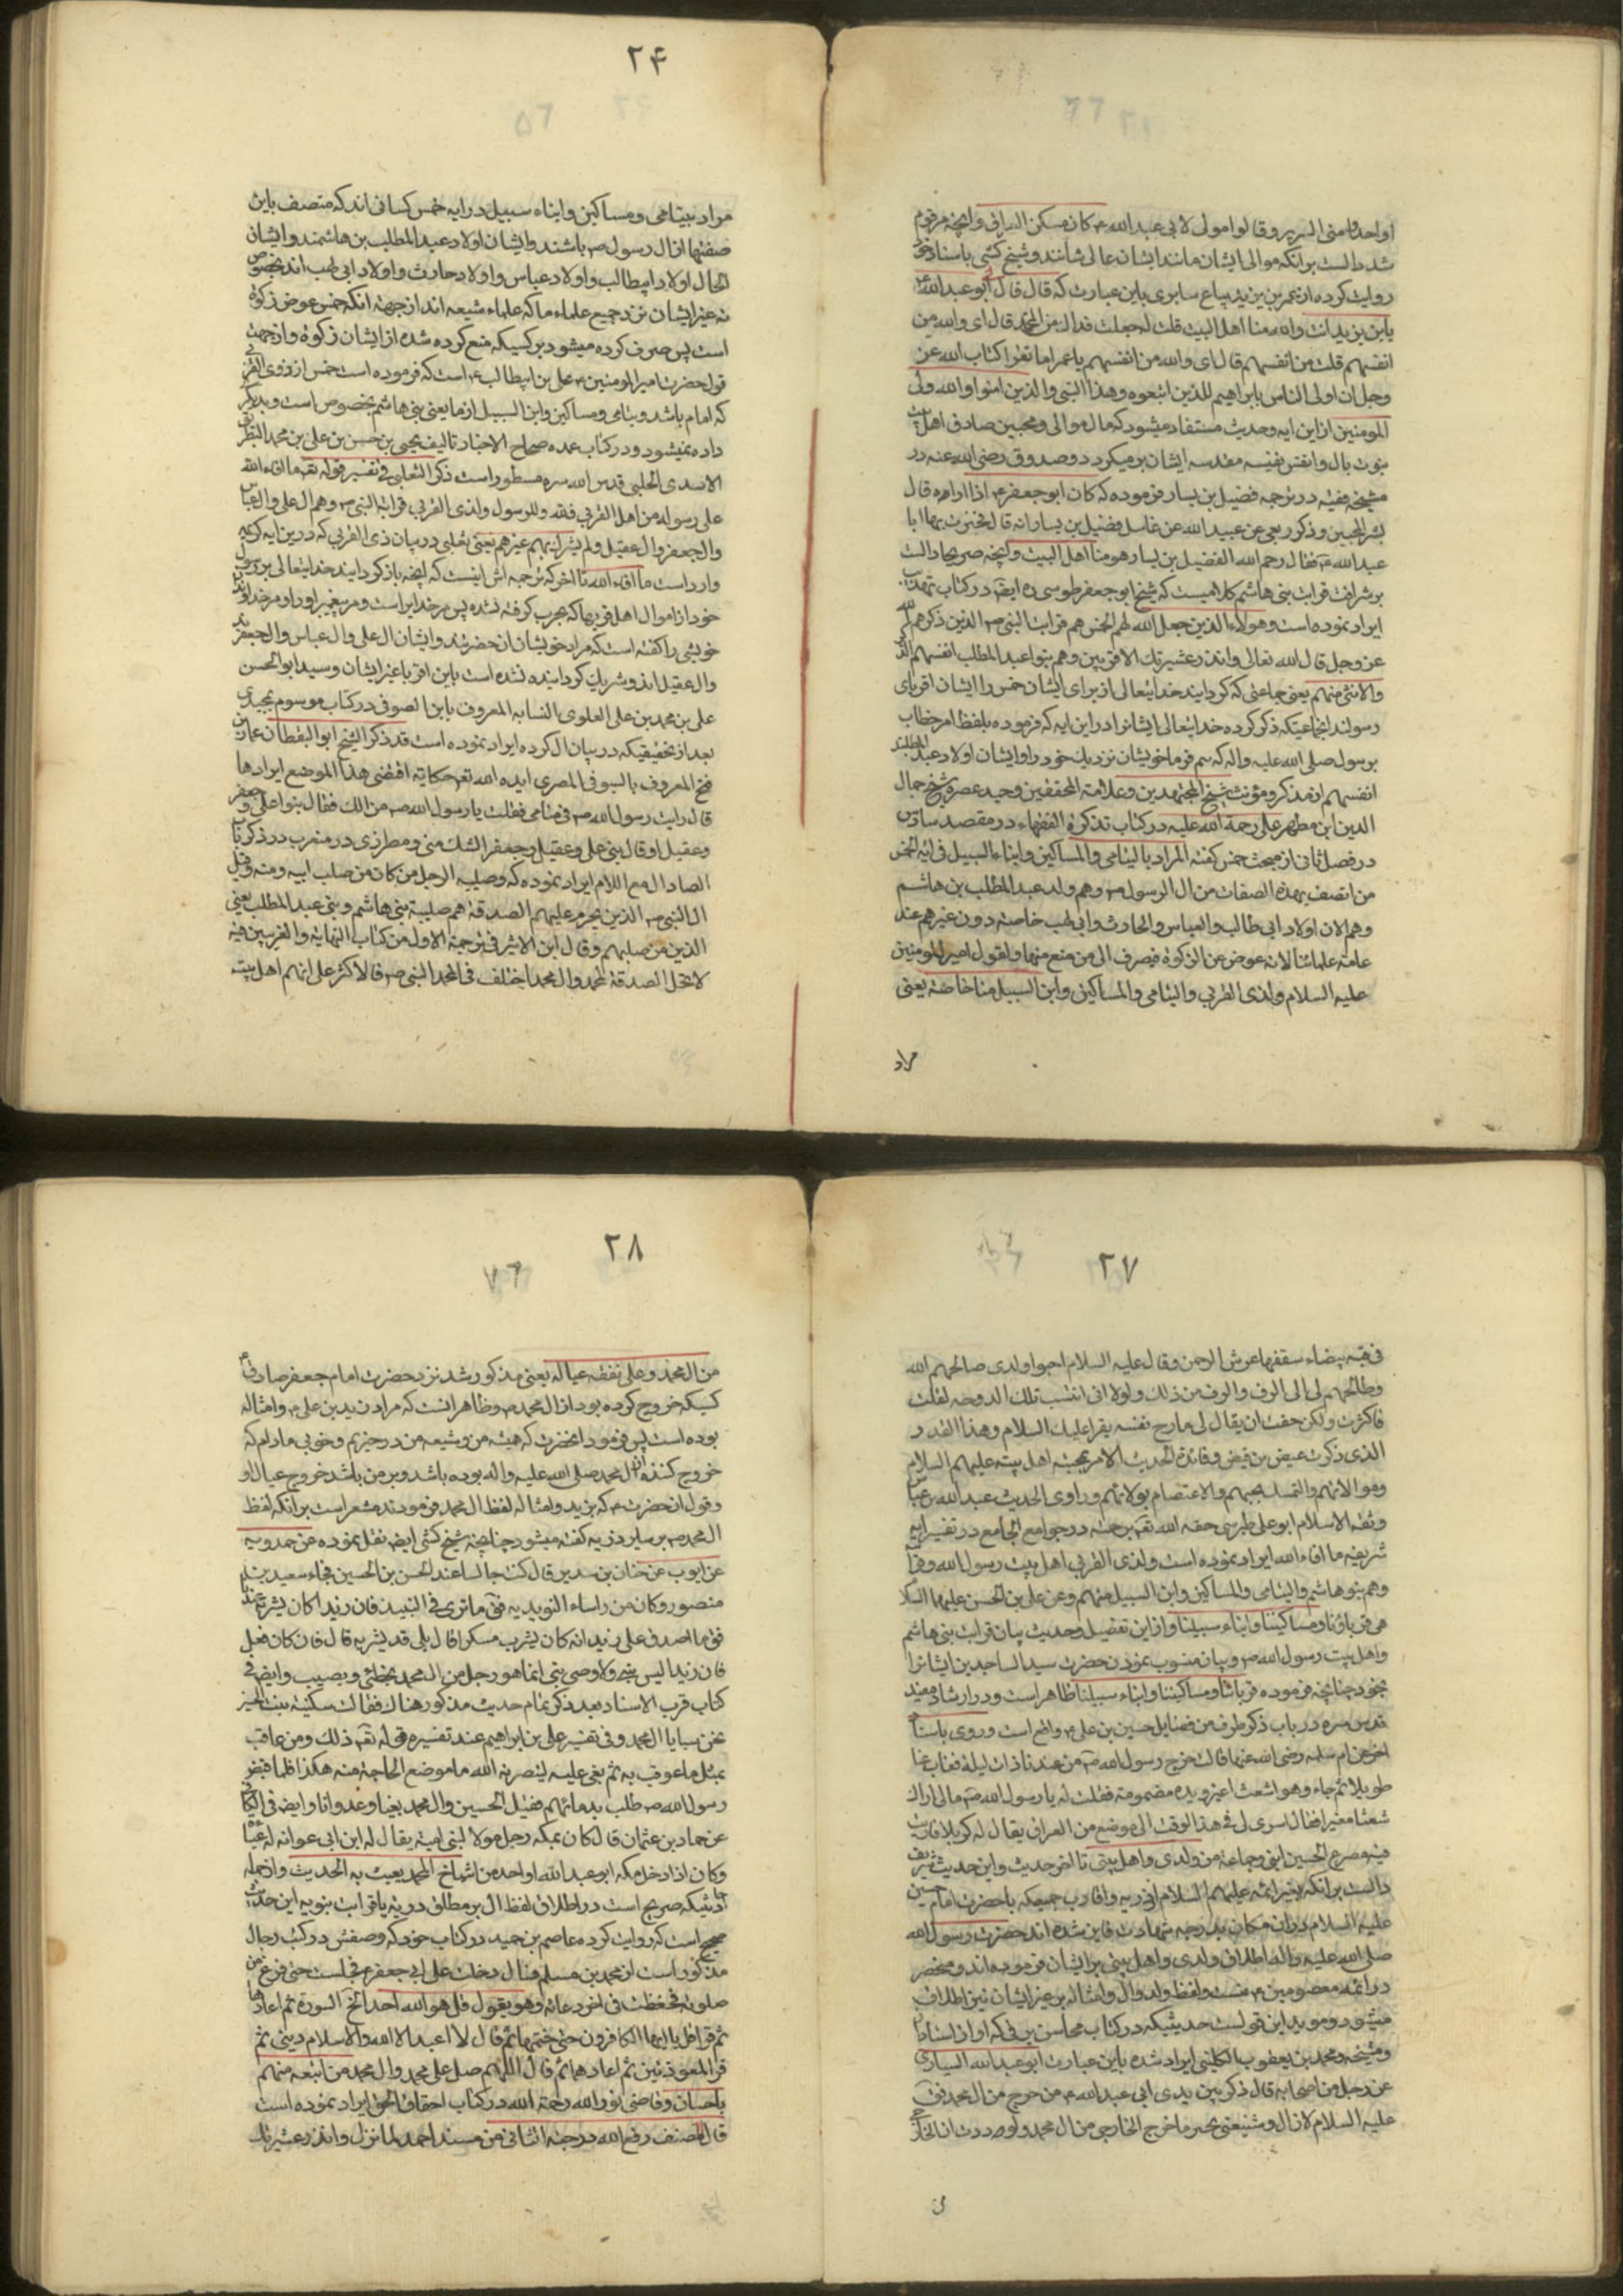 او احد وا منی السریر و قالوا مولی لابی عبدالله ع کان مسکن العراق و آنچه مرقوم
شد دالست بر آنکه موالی ایشان مانند ایشان عالی شانند و شیخ کشی باسناد خود
روایت کرده از عمر بن یزید بیاع سابری باین عبارت که قال قال ابو عبدالله ع
یابن یزید انت والله منا اهل البیت قلت له جعلت فداك من ال محمد قال ای والله من
انفسهم قلت من انفسهم قال ای والله من انفسهم یا عمر اما تقرا کتاب الله عز
وجل ان اولی الناس بابراهیم للذین اتبعوه وهذا النبی والذین امنوا والله ولی
المومنین از این ایه وحدیث مستفاد میشود که مال موالی و محبین صادق اهل بیت
نبوت بال و انفس نفیسه مقدسه ایشان بر میکردد و صدوق رضی الله عنه در
مشیخه فقیه در ترجمه فضیل بن یسار فرموده که کان ابو جعفر ع اذا راه قال
بشر المخبتین و ذکر ربعی عن عبید الله عن غاسل فضیل بن یسار انه قال فخبرت بها ابا
عبدالله ع فقال رحم الله الفضیل بن یسار هو منا اهل البیت و آنچه صریحا دالست
بر شرافت قرابت بنی هاشم کلامیست که شیخ ابو جعفر طوسی ره ایضا در کتاب تهذیب
ایراد نموده است وهولاء الذین جعل الله لهم الخمس هم قرابت النبی ص الذین ذکرهم الله
عز وجل قال الله تعالی وانذر عشیرتك الاقربین وهم بنو عبد المطلب انفسهم الذکر
والانثی منهم یعنی جماعتی که کردانید خدایتعالی از برای ایشان خمس را ایشان اقربای
رسولند انجماعتیکه ذکر کرده خدایتعالی ایشانرا در این ایه که فرموده بلفظ امر خطاب
برسول صلی الله علیه واله که بیم فرما خویشان نزدیك خود را و ایشان اولاد عبد المطلبند
انفسهم از مذکر و مؤنث شیخ المجتهدین و علامة المحققین وحید عصره شیخ جمال
الدین ابن مطهر حلی رحمة الله علیه در کتاب تذکرة الفقهاء در مقصد سادس
در فصل ثانی از مبحث خمس کفته المراد بالیتامی والمساکین وابناء السبیل فی ایة الخمس
من اتصف بهذه الصفات من ال الرسول ص وهم ولد عبد المطلب بن هاشم
وهم الان اولاد ابی طالب والعباس والحارث وابی لهب خاصة دون غیرهم عند
عامة علمائنا لانه عوض عن الزکوة فیصرف الی من منع منها ولقول امیر المومنین
علیه السلام ولذی القربی والیتامی والمساکین وابن السبیل منا خاصة یعنی
مراد
۲۴
مراد بیتامی و مساکین وابناء سبیل در ایه خمس کسانی اند که متصف باین
صفتها از ال رسول ص باشند و ایشان اولاد عبد المطلب بن هاشمند و ایشان
الحال اولاد ابیطالب و اولاد عباس و اولاد حارث و اولاد ابی لهب اند بخصوص
نه غیر ایشان نزد جمیع علماء ما که علماء شیعه اند از جهة انکه خمس عوض زکوة
است پس صرف کرده میشود بر کسیکه منع کرده شده از ایشان زکوة و از جهت
قول حضرت امیر المومنین ع علی بن ابیطالب ع است که فرموده است خمس از ذوی القربی
که امام باشد و یتامی و مساکین وابن السبیل از ما یعنی بنی هاشم بخصوص است و بدیکر
داده نمیشود و در کتاب عمده صحاح الاخبار تالیف یحیی بن حسن بن علی بن محمد البطریق
الاسدی الحلبی قدس الله سره مسطور است ذکر الثعلبی فی تفسیر قوله تعه ما افاء الله
علی رسوله من اهل القربی فلله وللرسول ولذی القربی قرابة النبی ص وهم ال علی وال العباس
وال جعفر وال عقیل ولم یشرك بهم غیرهم یعنی ثعلبی در بیان ذی القربی که درین ایه کریمه
وارد است ما افاء الله تا اخر که ترجمه اش اینست که انچه باز کردانید خدایتعالی بر رسول
خود از اموال اهل قریها که بحرب کرفته نشده پس مر خدایراست و مر پیغمبر او را و مر خداوند
خویشی را کفته است که مراد خویشان انحضرتند و ایشان ال علی وال عباس وال جعفرند
وال عقیل اند و شریك کردانیده نشده است باین اقربا غیر ایشان و سید ابو الحسن
علی بن محمد بن علی العلوی النسابه المعروف بابن الصوفی در کتاب موسوم بمجدی
بعد از تحقیقیکه در بیان ال کرده ایراد نموده است قد ذکر الشیخ ابو الیقظان عمار بن
فتح المعروف بالسیوفی المصری ایده الله تعه حکایة اقتضی هذا الموضع ایرادها
قال رایت رسول الله ص فی منامی فقلت یا رسول الله ص من الك فقال بنو اعلی وجعفر
وعقیل او قال بنی علی وعقیل وجعفر الشك منی و مطرزی در مغرب در ذکر باب
الصاد ال مع اللام ایراد نموده که وصلیبة الرجل من کان من صلب ابیه ومنه قیل
ال النبی ص الذین یحرم علیهم الصدقة هم صلیبة بنی هاشم و بنی عبد المطلب یعنی
الذین من صلبهم وقال ابن الاثیر فی ترجمة الاول من کتاب النهایة والغریبین فیه
لا تحل الصدقة لمحمد وال محمد اختلف فی ال محمد النبی ص فالاکثر علی انهم اهل بیته
۲۷
فی قبة بیضاء سقفها عرش الرحمن وقال علیه السلام احبوا ولدی صالحهم الله
وطالحهم لی
الذی ذکرت غیض من فیض وفائدة الحدیث الامر بمحبة اهل بیته علیهم السلام
وموالاتهم والتمسك بحبهم والاعتصام بولائهم وراوی الحدیث عبدالله بن عباس
وثقة الاسلام ابو علی طبرسی حفه الله تعه برحمته در جوامع الجامع در تفسیر ایه
شریفه ما افاء الله ایراد نموده است ولذی القربی اهل بیت رسول الله
وهم بنو هاشم والیتامی والمساکین وابن السبیل منهم وعن علی بن الحسین علیهما السلام
هی قربانا ومساکیننا وابناء سبیلنا و از این تفصیل وحدیث بیان قرابت بنی هاشم
واهل بیت رسول الله ص و بیان منسوب نمودن حضرت سید الساجدین ایشانرا
بخود چنانچه فرموده قربانا ومساکیننا وابناء سبیلنا ظاهر است و در ارشاد مفید
قدس سره در باب ذکر طرف من فضایل حسین بن علی ع واقع است وروی باسناد
اخر عن ام سلمه رضی الله عنها قالت خرج رسول الله ص من عندنا ذات لیلة فغاب عنا
طویلا ثم جاء وهو اشعث اغبر ویده مضمومة فقلت له یا رسول الله ص مالی اراك
شعثا مغبرا فقال اسری لی فی هذا الوقت الی موضع من العراق یقال له کربلا فاریت
فیه مصرع الحسین ابنی وجماعة من ولدی واهل بیتی تا اخر حدیث و این حدیث شریف
دالست بر آنکه بغیر ائمه علیهم السلام از ذریه واقارب جمیعکه با حضرت امام حسین
علیه السلام در ان مکان بدرجه شهادت فایز شده اند حضرت رسول الله
صلی الله علیه واله اطلاق ولدی واهل بیتی بر ایشان فرموده اند و منحصر
در ائمه معصومین ع نیست ولفظ ولد وال و امثاله بر غیر ایشان نیز اطلاق
میشود و موید این قولست حدیثیکه در کتاب محاسن برقی که او از اسناد
ومشیخه محمد بن یعقوب الکلینی ایراد شده باین عبارت ابو عبدالله السیاری
عن رجل من اصحابه قال ذکر بین یدی ابی عبدالله ع من خرج من ال محمد فق
علیه السلام لا زال وشیعتی بخیر ما خرج الخارجی من ال محمد ولوددت ان الخارجی
۲۸
من ال محمد وعلی نفقة عیاله یعنی مذکور شد نزد حضرت امام جعفر صادق ع
کسیکه خروج کرده بود از ال محمد ص و ظاهر انست که مراد زید بن علی ع و امثاله
بوده است پس فرمود انحضرت که همیشه من و شیعه من در خیریم و خوبی مادام که
خروج کننده از ال محمد صلی الله علیه واله بوده باشد و بر من باشد خروج عیال او
و قول ان حضرت ع که بزید و امثاله لفظ ال محمد فرمودند مشعر است بر انکه لفظ
ال محمد ص بر سایر ذریه کفته میشود چنانچه شیخ کشی ایضا نقل نموده عن حمدویه
عن ایوب عن حنان بن سدیر قال کنت جالسا عند الحسن بن الحسین فجاء سعید بن
منصور وکان من رؤساء الزیدیه فق ما تری فی النبیذ فان زیدا کان یشربه عندنا
فق ما اصدق علی زید انه کان یشرب مسکرا قال بلی قد یشربه قال فان کان فعل
فان زیدا لیس بنبی ولا وصی نبی انما هو رجل من ال محمد یخطئ ویصیب وایضا فی
کتاب قرب الاسناد بعد ذکر تمام حدیث مذکور هناك فقالت سکینة بنت الحسین
نحن سبایا ال محمد و فی تفسیر علی بن ابراهیم عند تفسیره قوله تعه ذلك ومن عاقب
بمثل ما عوقب به ثم بغی علیه لینصرنه الله ما موضع الحاجة منه هکذا فلما قبض
رسول الله ص طلب بدمائهم فقتل الحسین وال محمد بغیا وعدوانا وایضا فی الکافی
عن حماد بن عثمان قال کان بمکة رجل مولا لبنی امیة یقال له ابن ابی عوانه له عبادة
وکان اذا دخل مکة ابو عبدالله او احد من اشیاخ ال محمد یعبث به الحدیث و از جمله
احادیثیکه صریح است در اطلاق لفظ ال بر مطلق ذریه یا قرابت نبویه این حدیث
صحیح است که روایت کرده عاصم بن حمید در کتاب خود که وصفش در کتب رجال
مذکور است از محمد بن مسلم قال دخلت علی ابی جعفر ع فجلست حتی فرغ من
صلوته فحفظت فی اخر دعائه وهو یقول قل هو الله احد الخ السورة ثم اعادها
ثم قرا قل یا ایها الکافرون حتی ختمها ثم قال لا اعبد الا الله والاسلام دینی ثم
قرا المعوذتین ثم اعادهما ثم قال اللهم صل علی محمد وال محمد من اتبعه منهم
باحسان وقاضی نور الله رحمة الله در کتاب احقاق الحق ایراد نموده است
قال المصنف رفع الله درجته الثانی من مسند احمد لما نزل وانذر عشیرتك